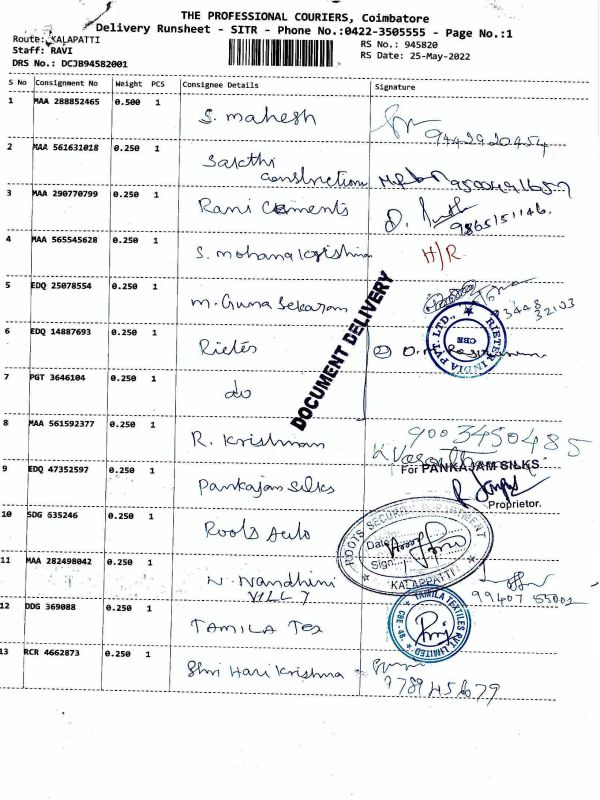 THE PROFESSIONAL COURIERS, Coimbatore
Delivery Runsheet - SITR - Phone No.:0422-3505555 - Page No.:1
Route: KALAPATTI
Staff: RAVI
DRS No.: DCJB94582001
RS No.: 945820
RS Date: 25-May-2022
S No Consignment No Weight PCS Consignee Details Signature
1 MAA 288852465 0.500 1 S. mahesh
9442920454
2 MAA 561631018 0.250 1 Sakthi
Constnretion
3 MAA 290770799 0.250 1 Rani Cements
9865151146.
4 MAA 565545628 0.250 1 S. mohana krishna H/R.
5 EDQ 25078554 0.250 1 m. Guna Sekaran
DOCUMENT DELIVERY
RIETER INDIA PVT. LTD., CBE
6 EDQ 14887693 0.250 1 Rieter
7 PGT 3646104 0.250 1 do
8 MAA 561592377 0.250 1 R. Krishnan 9003450485
For PANKAJAM SILKS
9 EDQ 47352597 0.250 1 Pankajam Silks
Proprietor.
10 SDG 635246 0.250 1 Roots Auto
ROOTS SECURITY DEPARTMENT
Date
Sign.
KALAPPATTI
11 MAA 282498042 0.250 1 N. Nandhini
VILL 7
99407 55001
12 DDG 369088 0.250 1 TAMILA Tex
TAMILA TEXTILES PVT. LIMITED CBE - 48
13 RCR 4662873 0.250 1 Shri Hari Krishna
9789456679